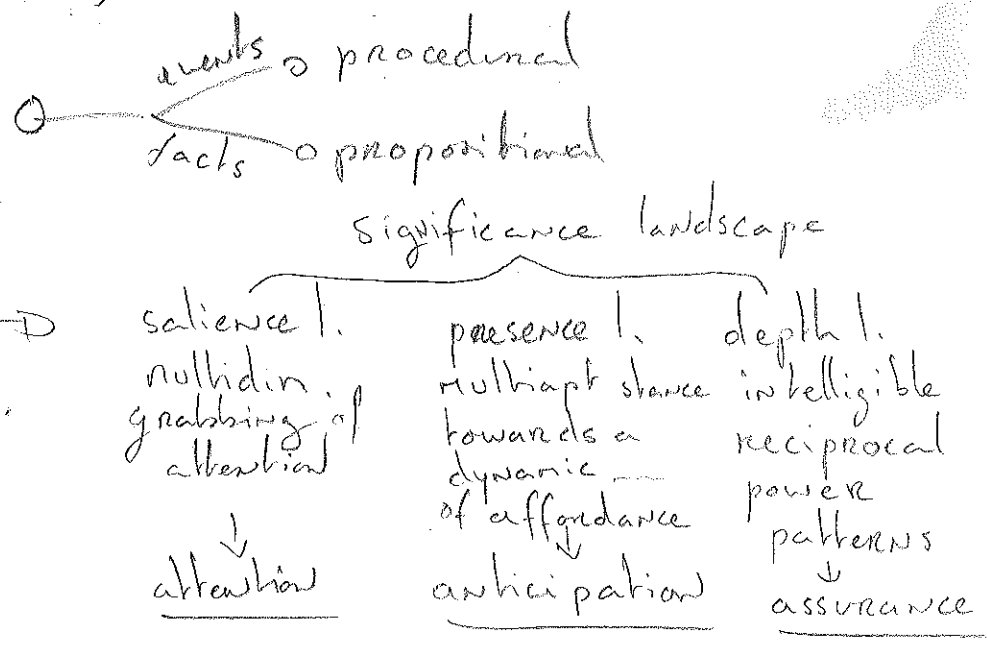 events
procedural
facts
propositional
significance landscape
salience l.
multidim.
grabbing of
attention
attention
presence l.
multiapt stance
towards a
dynamic
of affordance
anticipation
depth l.
intelligible
reciprocal
power
patterns
assurance